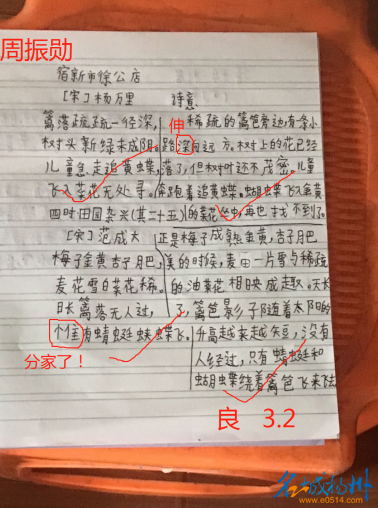 周振勋
宿新市徐公店
[宋]杨万里
篱落疏疏一径深,
树头新绿未成阴。
儿童急走追黄蝶,
飞入菜花无处寻。
四时田园杂兴(其二十五)
[宋]范成大
梅子金黄杏子肥,
麦花雪白菜花稀。
日长篱落无人过,
惟有蜻蜓蛱蝶飞。
分家了!
诗意
伸
稀疏的篱笆旁边,有一条小
路深向远方。树上的花已经
落了,但树叶还不茂密。儿童
奔跑着追黄蝶。蝴蝶飞入金黄
的菜花中,再也找不到了。
正是梅子成熟金黄,杏子肥
美的时候,麦田一片雪与稀疏
的油菜花相映成趣。天长
了,篱笆影子随着太阳的
升高越来越短,没有
人经过,只有蜻蜓和
蝴蝶绕着篱笆飞来飞去
良 3.2
名城扬州
www.e0514.com